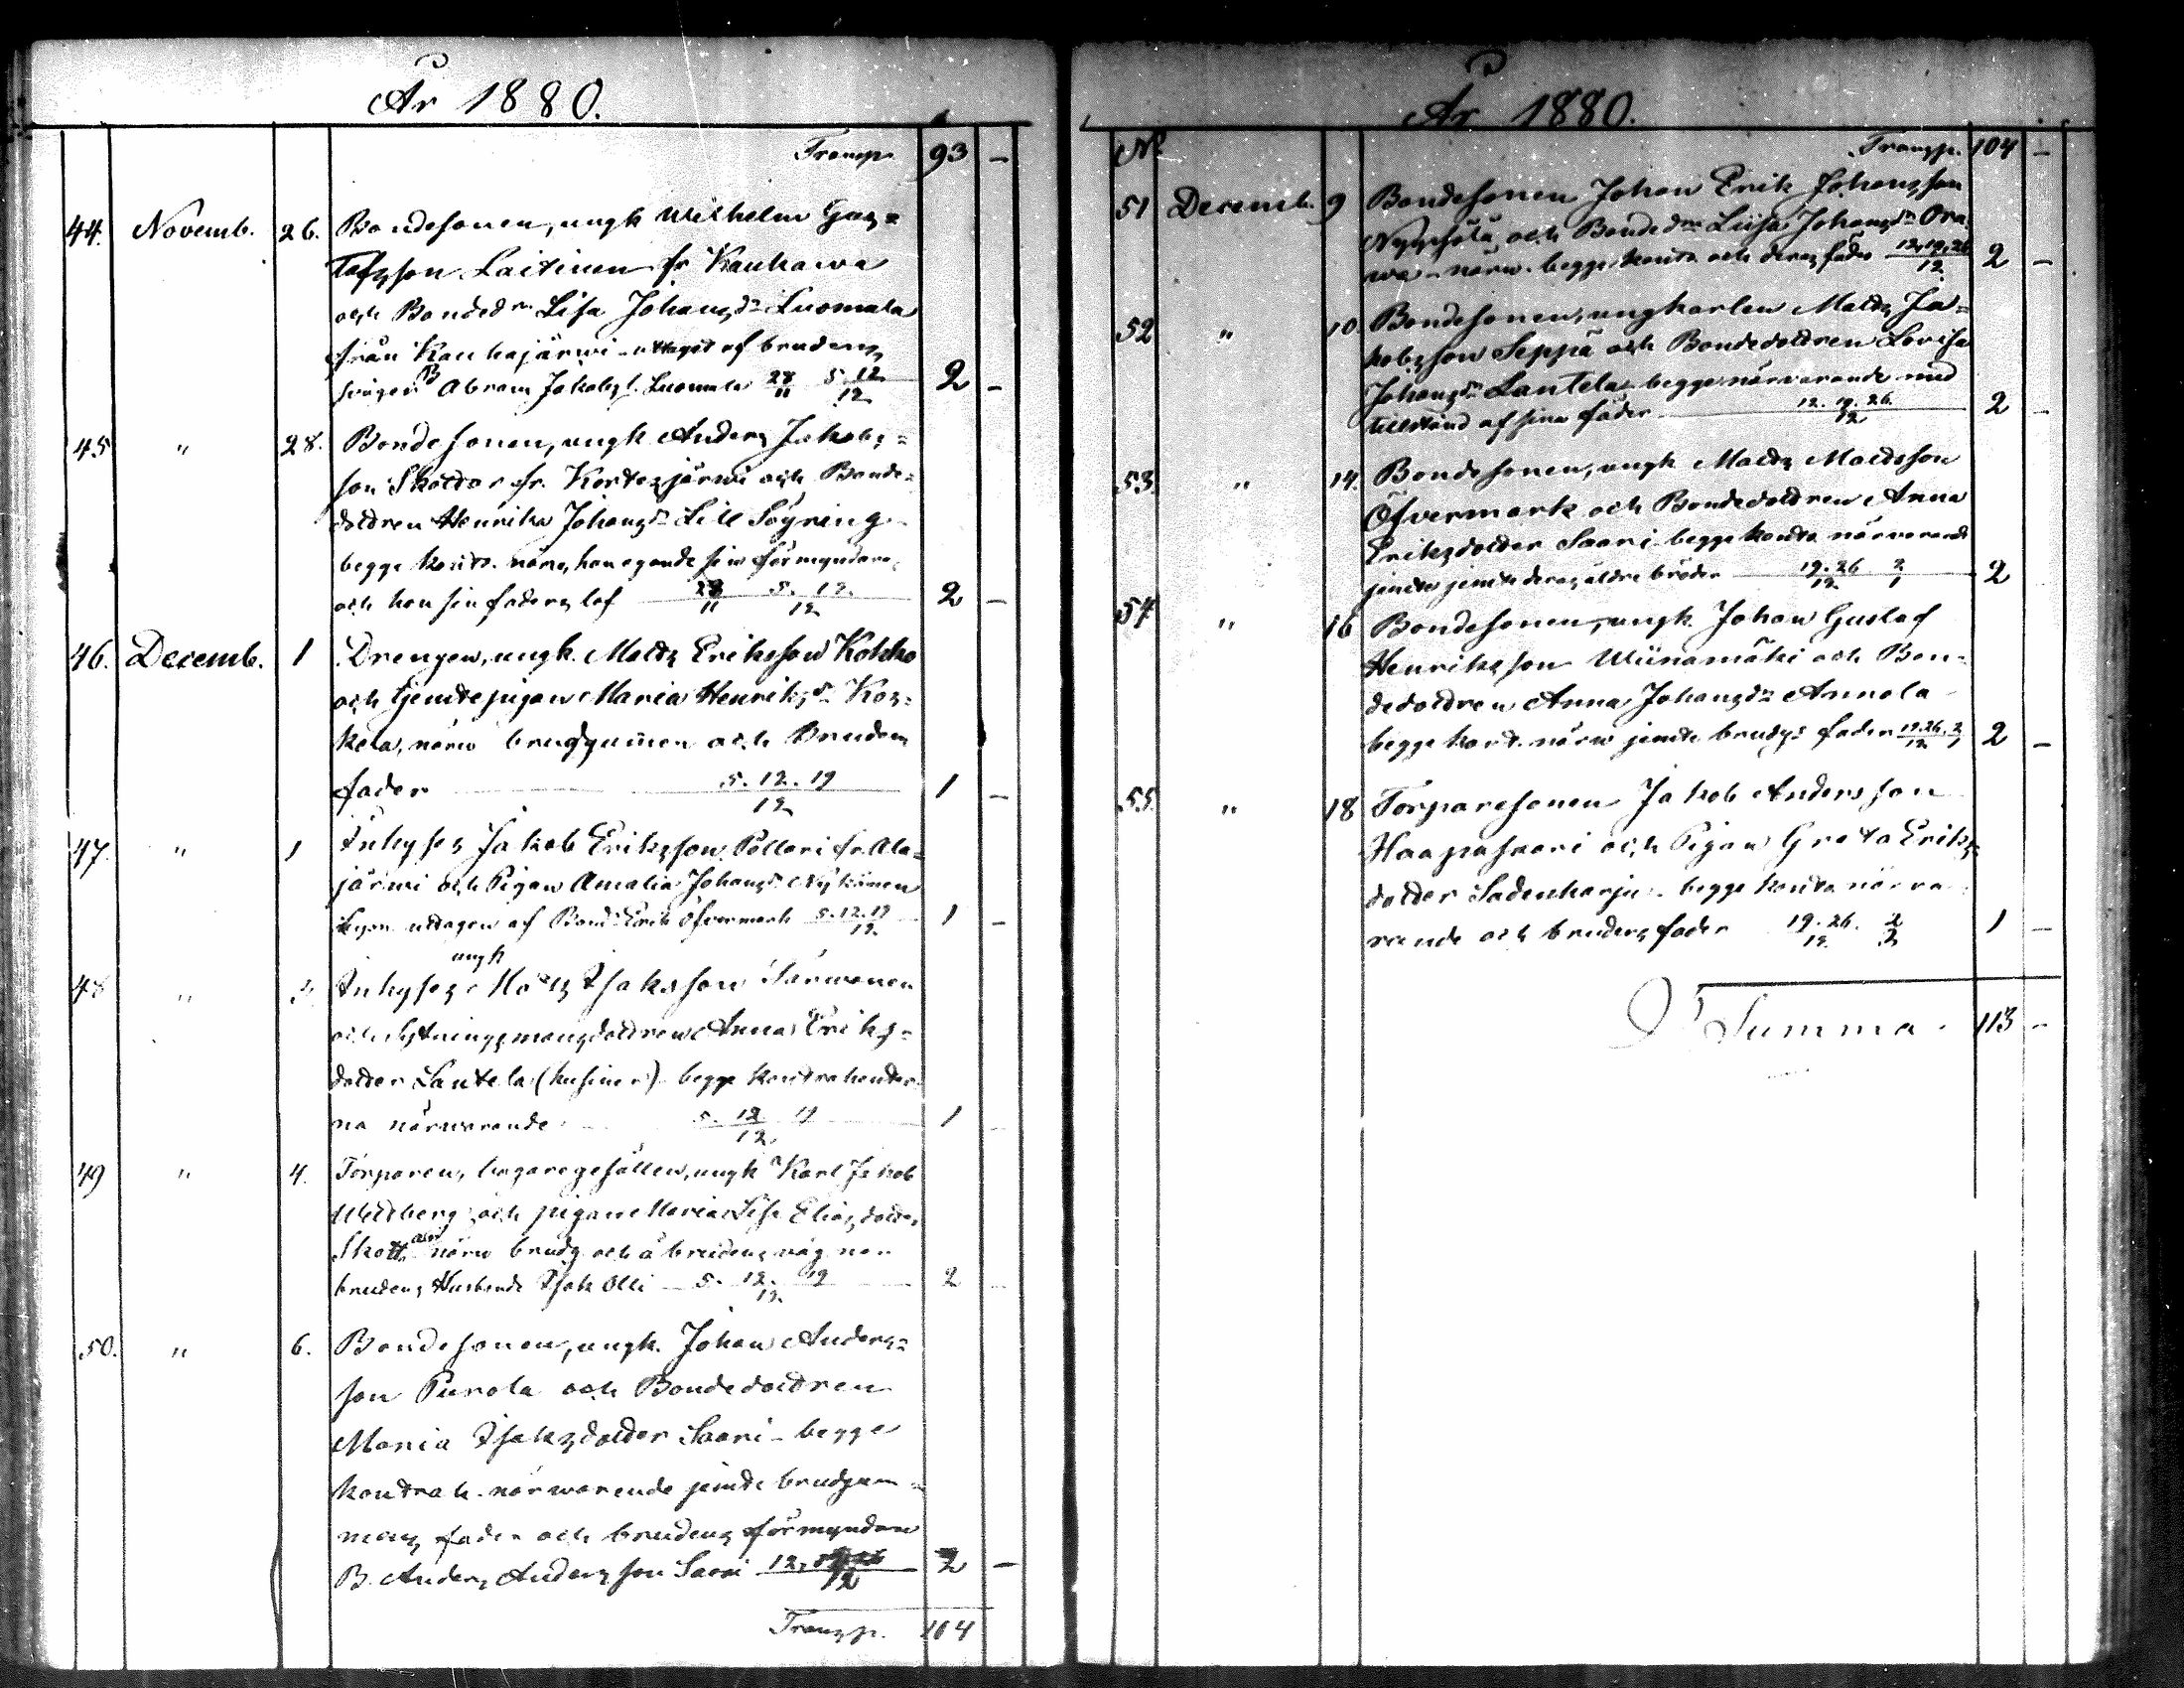 År 1880.
Transp. 93 –
44. Novemb. 26. Bondesonen, ungk Wilhelm Gus=
tafsson Laitinen fr Kauhawa
och Bonded:r Lisa Johansd:r Luomala
från Kauhajärwi uttaget af brudens
swåger B Abram Jakobs. Luomala 28/11 5. 12/12 2 –
45 " 28. Bondesonen, ungk Anders Jakobs=
son Skottar fr. Kortesjärwi och Bonde=
dottren Henrika Johansd:r Lill Söyring
begge kontr. närv, han egande sin förmyndares
och hon sin faders lof 28/11 5. 12/12 2 –
46. Decemb. 1 Drengen, ungk. Matts Eriksson Kokko
och tjenstepigan Maria Henriksd:r Kos=
kela, närv brudgummen och Brudens
fader 5. 12. 19/12 1 –
47. " 1 Inhyses Jakob Eriksson Pollari fr. Ala=
järwi och Pigan Amalia Johansd:r Nykänen
Lysn. uttagen af Bond. Erik Öfvermark 5. 12. 19/12 1 –
ungk
48 " 3 Inhyses Matts Isaksson Särwonen
och Sytningsmansdottren Anna Eriks=
dotter Lautela (kusiner) begge kontrahenter
na närwarande 5. 12 19/12 1
49 " 4. Torparen, bagaregesällen, ungk Karl Jakob
Widberg och pigan Maria Lisa Eliasdotter
Skottar närv brudg och å brudens väg nar
brudens Husbonde Isak Olli 5. 12. 19/12 2
50. " 6. Bondesonen, ungk. Johan Anders=
son Purola och Bondedottren
Maria Isaksdotter Saari – begge
kontrah. närwarende jemte brudgum=
mens fader och brudens förmyndare
B. Anders Andersson Saari 12, 2 –
Transp. 104
År 1880.
N:o Transp. 104 –
51 Decemb. 9 Bondesonen Johan Erik Johansson
och Bonded:r Liisa Johansd:r Ora
wa – närw. begge kontr. och deras fäder 12, 19, 26/12 2 –
52 " 10 Bondesonen, ungkarlen Matts Ja=
kobsson Seppä och Bondedottren Lovisa
Johansd:r Lautela begge närvarande med
tillstånd af sina fäder 12. 19. 26./12 2 –
53. " 14. Bondesonen, ungk Matts Mattsson
Öfvermark och Bondedottren Anna
Eriksdotter Saari – begge kontr. närvarande
jemte jemte deras äldre bröder 19. 26/12 2/1 2
54 " 16 Bondesonen, ungk. Johan Gustaf
Henriksson Wiinamäki och Bon=
dedottren Anna Johansd:r Annola
begge kontr. närv jemte brudgs fader 19. 26/12. 2/1 2 –
55. " 18 Torparesonen Jakob Andersson
Haapasaari och Pigan Greta Eriks=
dotter Sadenharju – begge kontr. närva
rande och brudens fader 19. 26./12 2/2 1 –
Summa 113 –